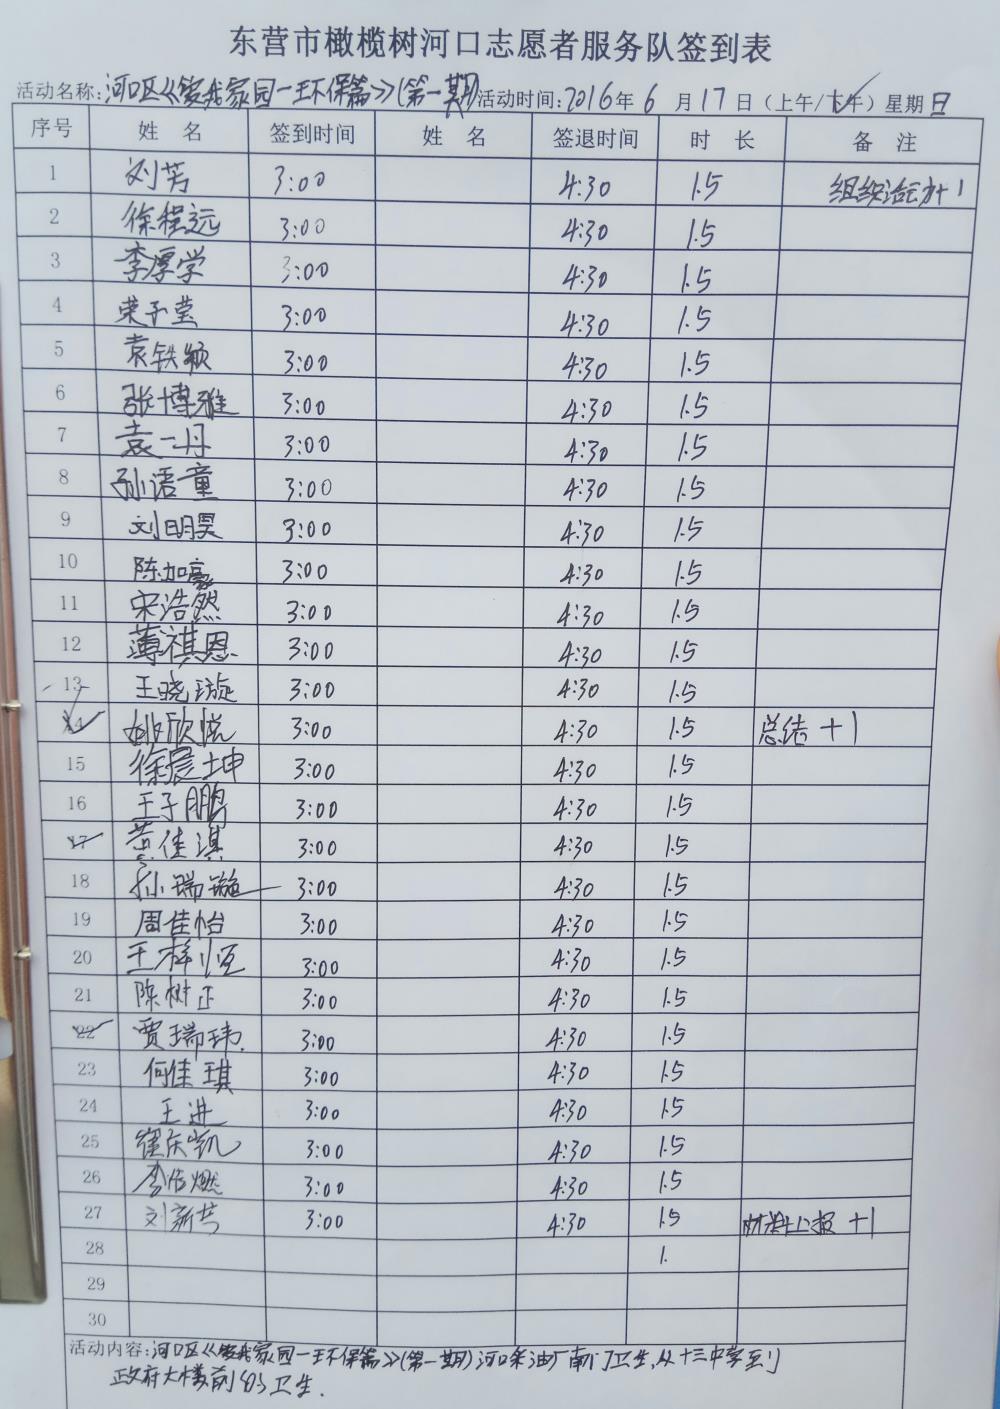 东营市橄榄树河口志愿者服务队签到表
活动名称:河口区《爱我家园—环保篇》(第一期) 活动时间:2016年6月17日(上午/下午)星期日
序号 姓名 签到时间 姓名 签退时间 时长 备注
1 刘芳 3:00 4:30 1.5 组织活动+1
2 徐程远 3:00 4:30 1.5
3 李厚学 3:00 4:30 1.5
4 荣子莹 3:00 4:30 1.5
5 袁铁颖 3:00 4:30 1.5
6 张博雅 3:00 4:30 1.5
7 袁一丹 3:00 4:30 1.5
8 孙语童 3:00 4:30 1.5
9 刘明昊 3:00 4:30 1.5
10 陈加豪 3:00 4:30 1.5
11 宋浩然 3:00 4:30 1.5
12 薄祺恩 3:00 4:30 1.5
13 王晓璇 3:00 4:30 1.5
14 姚欣悦 3:00 4:30 1.5 总结+1
15 徐震坤 3:00 4:30 1.5
16 王子鹏 3:00 4:30 1.5
17 黄佳淇 3:00 4:30 1.5
18 孙瑞璇 3:00 4:30 1.5
19 周佳怡 3:00 4:30 1.5
20 王梓恒 3:00 4:30 1.5
21 陈树正 3:00 4:30 1.5
22 贾瑞玮 3:00 4:30 1.5
23 何佳琪 3:00 4:30 1.5
24 王进 3:00 4:30 1.5
25 崔庆凯 3:00 4:30 1.5
26 李浩燃 3:00 4:30 1.5
27 刘新芳 3:00 4:30 1.5 材料上报+1
28 1.
29
30
活动内容:河口区《爱我家园—环保篇》(第一期)河口采油厂南门卫生,从十三中学至
政府大楼前的卫生.